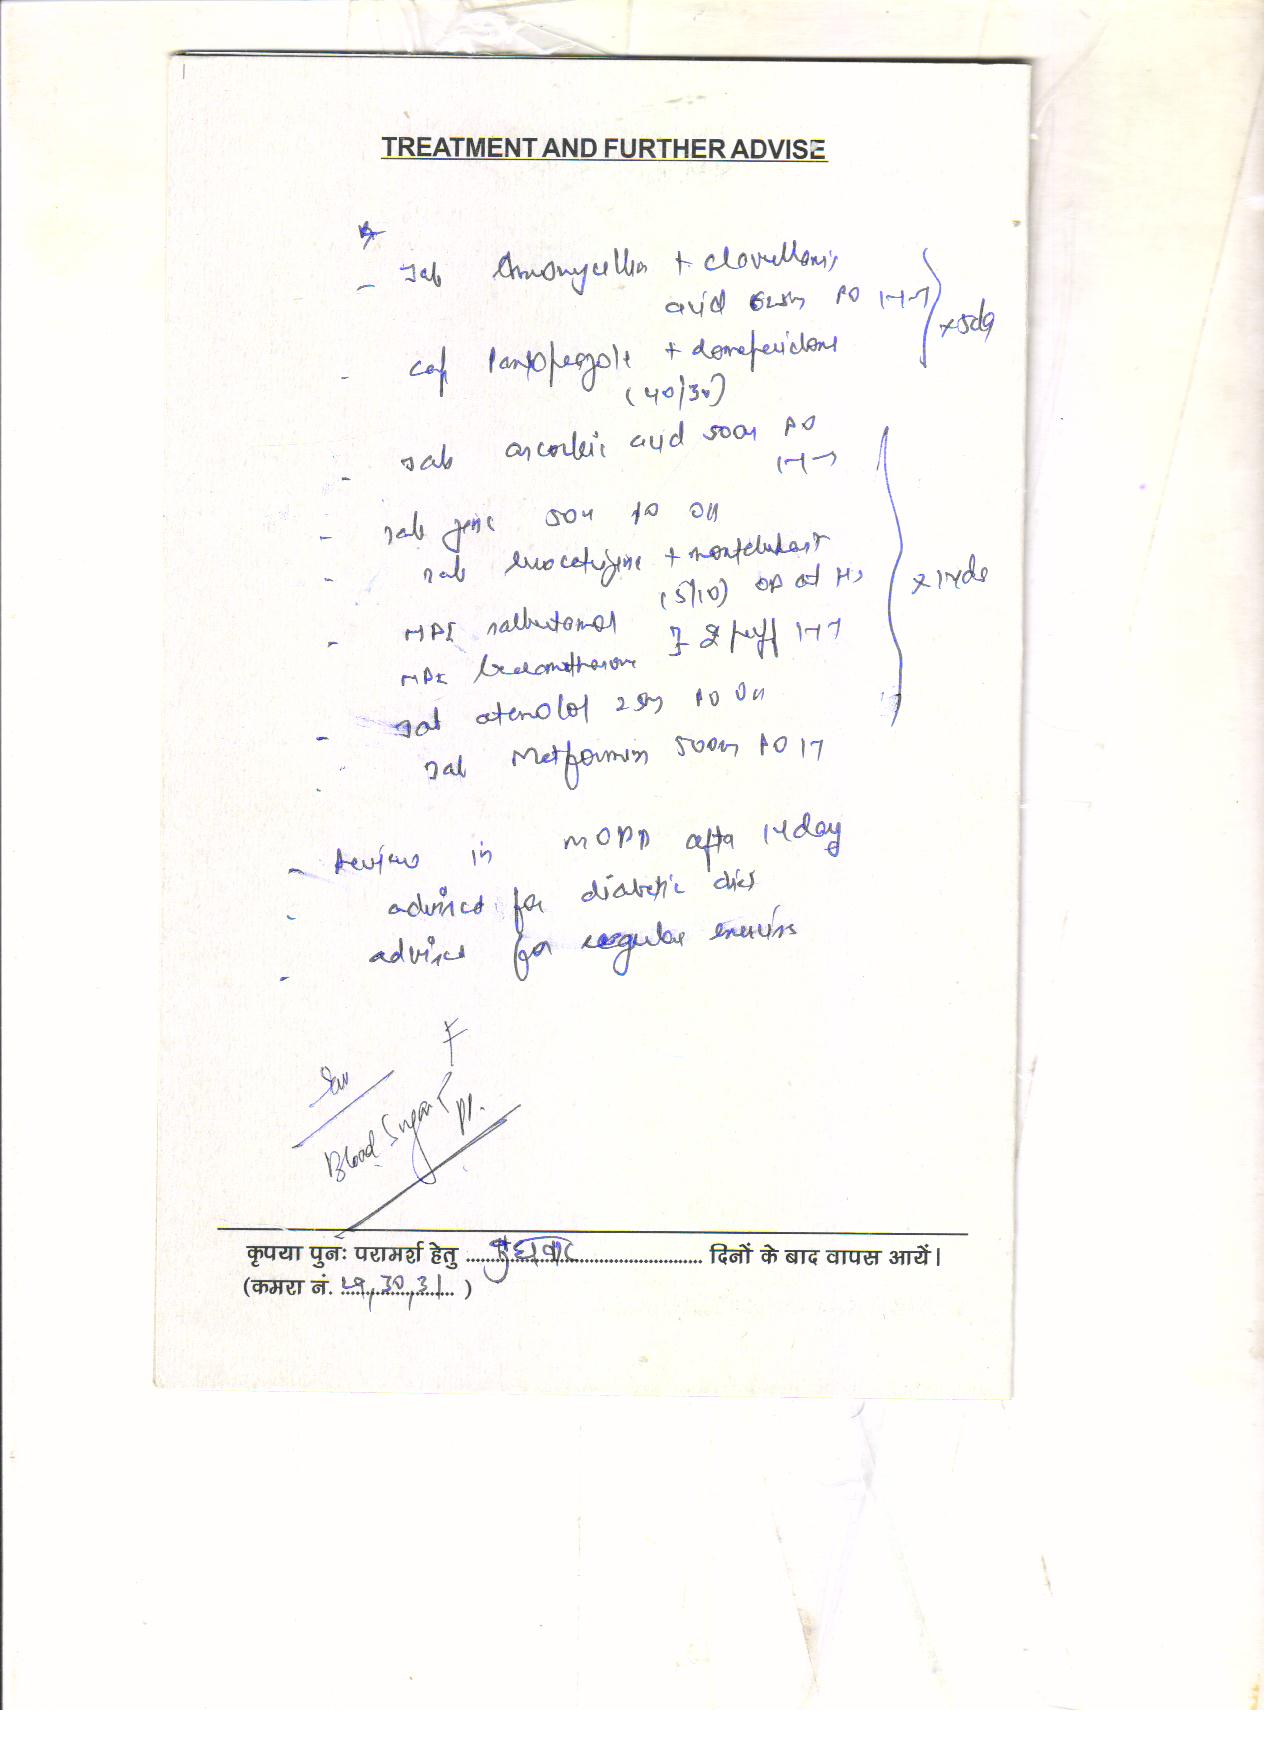 TREATMENT AND FURTHER ADVISE
- Tab Amoxycillin + clavullanic
acid 625mg PO 1-1-1 } x 5d
- cap Pantoprazole + domeperidone
(40/30)
- Tab ascorbic acid 500mg PO
1-1-1
- Tab zinc 50mg PO OD
- Tab levocetrizine + montelukast
(5/10) OD at HS x 14d
- MDI salbutamol } 2 puff 1-1-1
MDI beclomethasone
- Tab atenolol 25mg PO OD
- Tab Metformin 500mg PO 1-1
- Review in MOPD after 14 day
- advice for diabetic diet
- advice for regular exercise
F
Blood Sugar
PP.
कृपया पुनः परामर्श हेतु बुधवार दिनों के बाद वापस आयें।
(कमरा नं. 29, 30, 31 )